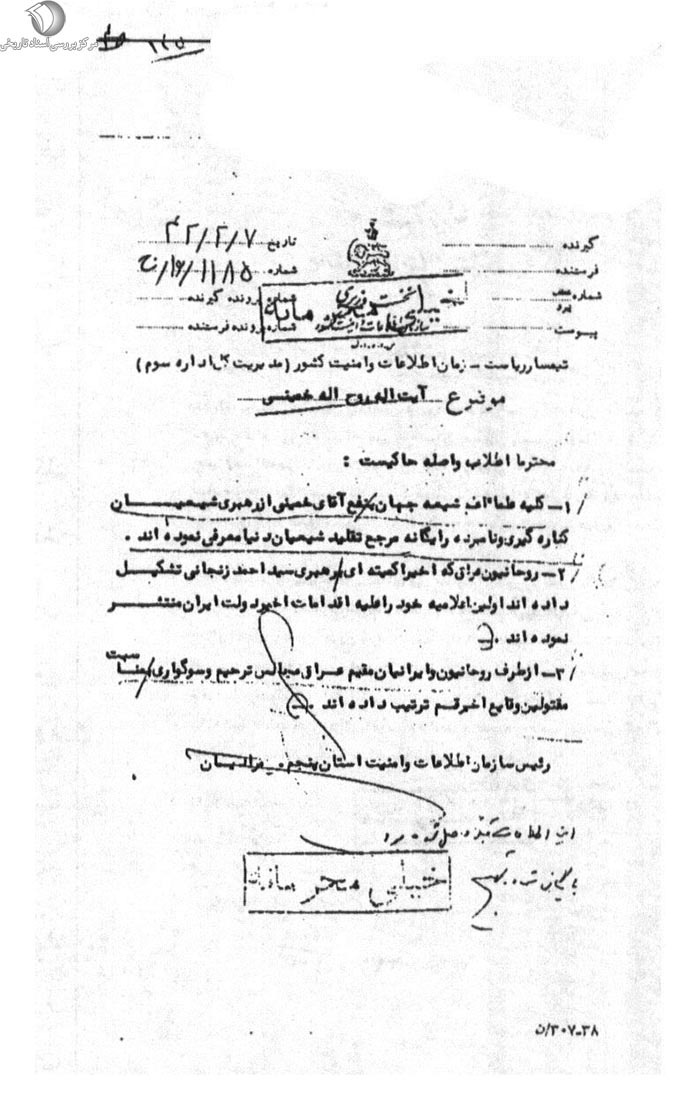 مرکز بررسی اسناد تاریخی
گیرنده
تاریخ ۴۲/۲/۷
فرستنده
شماره ۱۱۸۵
شماره
شماره پرونده گیرنده
نخست وزیری
سازمان اطلاعات و امنیت کشور
س.ا.و.ا.ک
خیلی محرمانه
پیوست
شماره پرونده فرستنده
تیمسار ریاست سازمان اطلاعات و امنیت کشور (مدیریت کل اداره سوم)
موضوع آیت اله روح اله خمینی
محترما اطلاب واصله حاکیست :
۱ـ کلیه علماء شیعه جهان بنفع آقای خمینی از رهبری شیعیان
کناره گیری و نامبرده را یگانه مرجع تقلید شیعیان دنیا معرفی نموده اند .
۲ـ روحانیون عراق که اخیرا کمیته ای برهبری سید احمد زنجانی تشکیل
داده اند اولین اعلامیه خود را علیه اقدامات اخیر دولت ایران منتشر
نموده اند .
۳ـ از طرف روحانیون و ایرانیان مقیم عراق مجالس ترحیم و سوگواری بمناسبت
مقتولین وقایع اخیر قم ترتیب داده اند .
رئیس سازمان اطلاعات و امنیت استان پنجم.
این اطلاعات قبلا واصل شده بود
خیلی محرمانه
۳۰۷ـ۳۸/ن